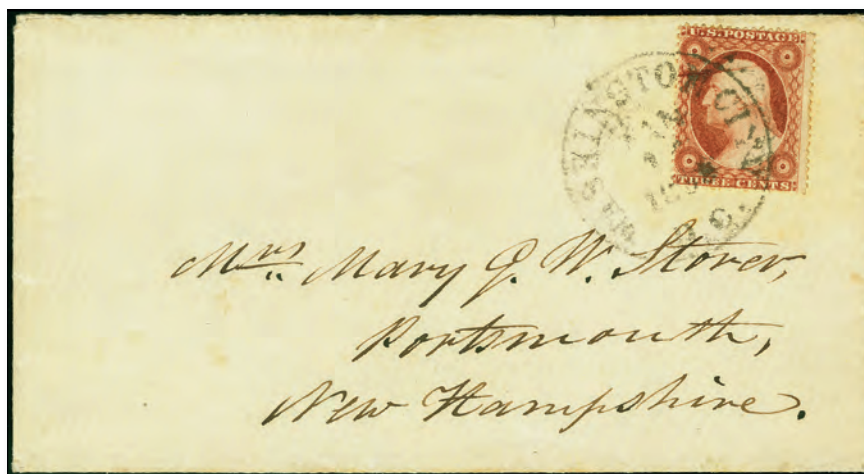 U.S. POSTAGE
THREE CENTS
WASHINGTON CITY
Mrs. Mary J. W. Storer,
Portsmouth,
New Hampshire.